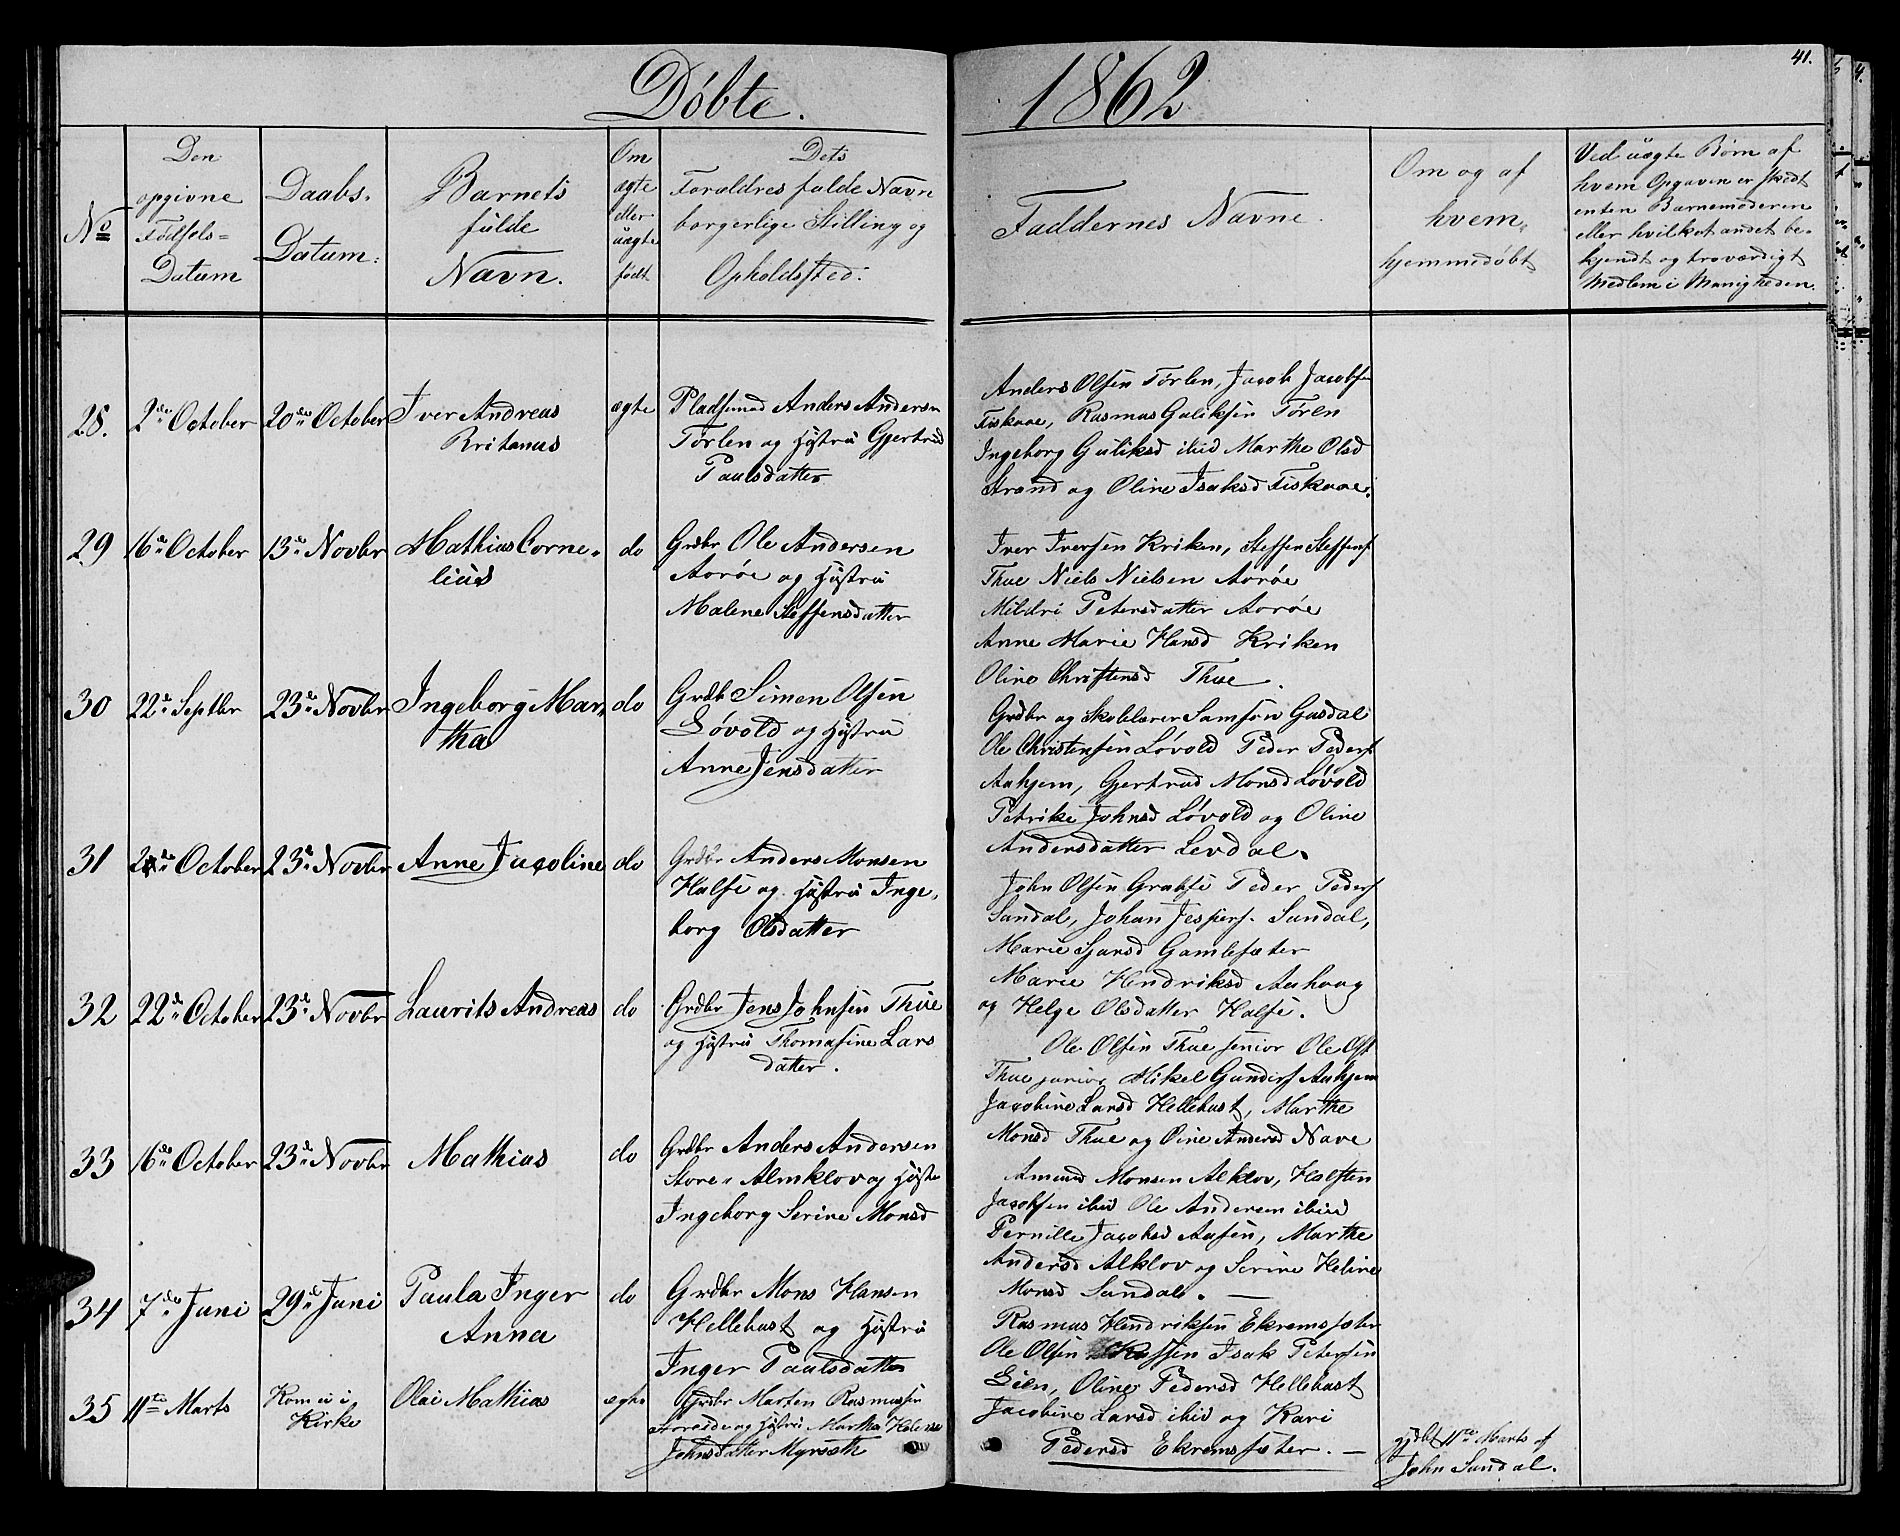 Døbte.
1862
41.
No
Den
opgivne
Fødsels=
Datum
Daabs-
Datum:
Barnets
fulde
Navn.
Om
ægte
eller
uægte
født
Dets
Forældres fulde Navn
borgerlige Stilling og
Opholdssted:
Faddernes Navne.
Om og af
hvem
hjemmedøbt
Ved uægte Børn af
hvem Opgaven er skedt
enten Barnemoderen
eller hvilket andet be-
kjendt og troværdigt
Medlem i Menigheden.
28.
2de October
20de October
Iver Andreas
Kritanus
ægte
Pladsmd Anders Andersn
Tørlen og Hustru Gjertrud
Paulsdatter
Anders Olsen Tørlen, Jacob Jacobsn
Fiskaae, Rasmus Guliksen Tørlen
Ingeborg Guliksd ibid Marthe Olsd
Strand og Oline Isaksd Fiskaae.
29
16de October
13de Novbr
Mathias Corne-
lius
do
Grdbr Ole Andersen
Aorøe og Hustru
Malene Steffensdatter
Iver Iversen Kriken, Steffen Steffens
Thue Niels Nielsen Aorøe
Mildri Petersdatter Aorøe
Anne Marie Hansd Kriken
Oline Christensd Thue.
30
22de Septbr
23de Novbr
Ingeborg Mar-
tha
do
Grdbr Simen Olsen
Løvold og Hustru
Anne Jensdatter
Grdbr og Skolelærer Samson Gusdal
Ole Christensen Løvold Peder Peders
Aahjem, Gjertrud Monsd Løvold
Petrike Johnsd Løvold og Oline
Andersdatter Levdal.
31
October
23de Novbr
Anne Jacoline
do
Grdbr Anders Monsen
Halse og Hustru Inge-
borg Olsdatter
John Olsen Grabse Peder Peders
Sandal, Johan Jespers. Sundal,
Marie Sjursd Gamlesæter
Marie Hendriksd Aahaag
og Helge Olsdatter Halse.
32
22de October
23de Novbr
Laurits Andreas
do
Grdbr Jens Johnsen Thue
og Hustru Thomasine Lars
datter.
Ole Olsen Thue senior Ole Ols
Thue junior Mikel Gunders Aahjem
Jacobine Larsd Hellebust, Marthe
Monsd Thue og Oine Andersd Nave
33
16de October
23de Novbr
Mathias
do
Grdbr Anders Andersen
Store-Almklov og Hustr
Ingeborg Serine Monsd
Amund Monsen Alklov, Halsten
Jacobsen ibid Ole Andersen ibid
Pernille Jacobsd Aasen, Marthe
Andersd Alklov og Serine Heline
Monsd Sandal. —
34
7de Juni
29de Juni
Paula Inger
Anna
do
Grdbr Mons Hansen
Hellebust og Hustru
Inger Paulsdatter
Rasmus Hendriksen Ekremsæter
Ole Olsen Isak Petersen
Lien, Oline Pedersd Hellebust
Jacobine Larsd ibid og Kari
Pedersd Ekremsæter. —
35
11te Marts
Kom ei i
Kirke
Olai Mathias
ægte
Grdbr Marten Rasmussen
og Hustru Marthe Helense
Johnsdatter Myrsæth
gjdbt 11te Marts af
John Sundal.